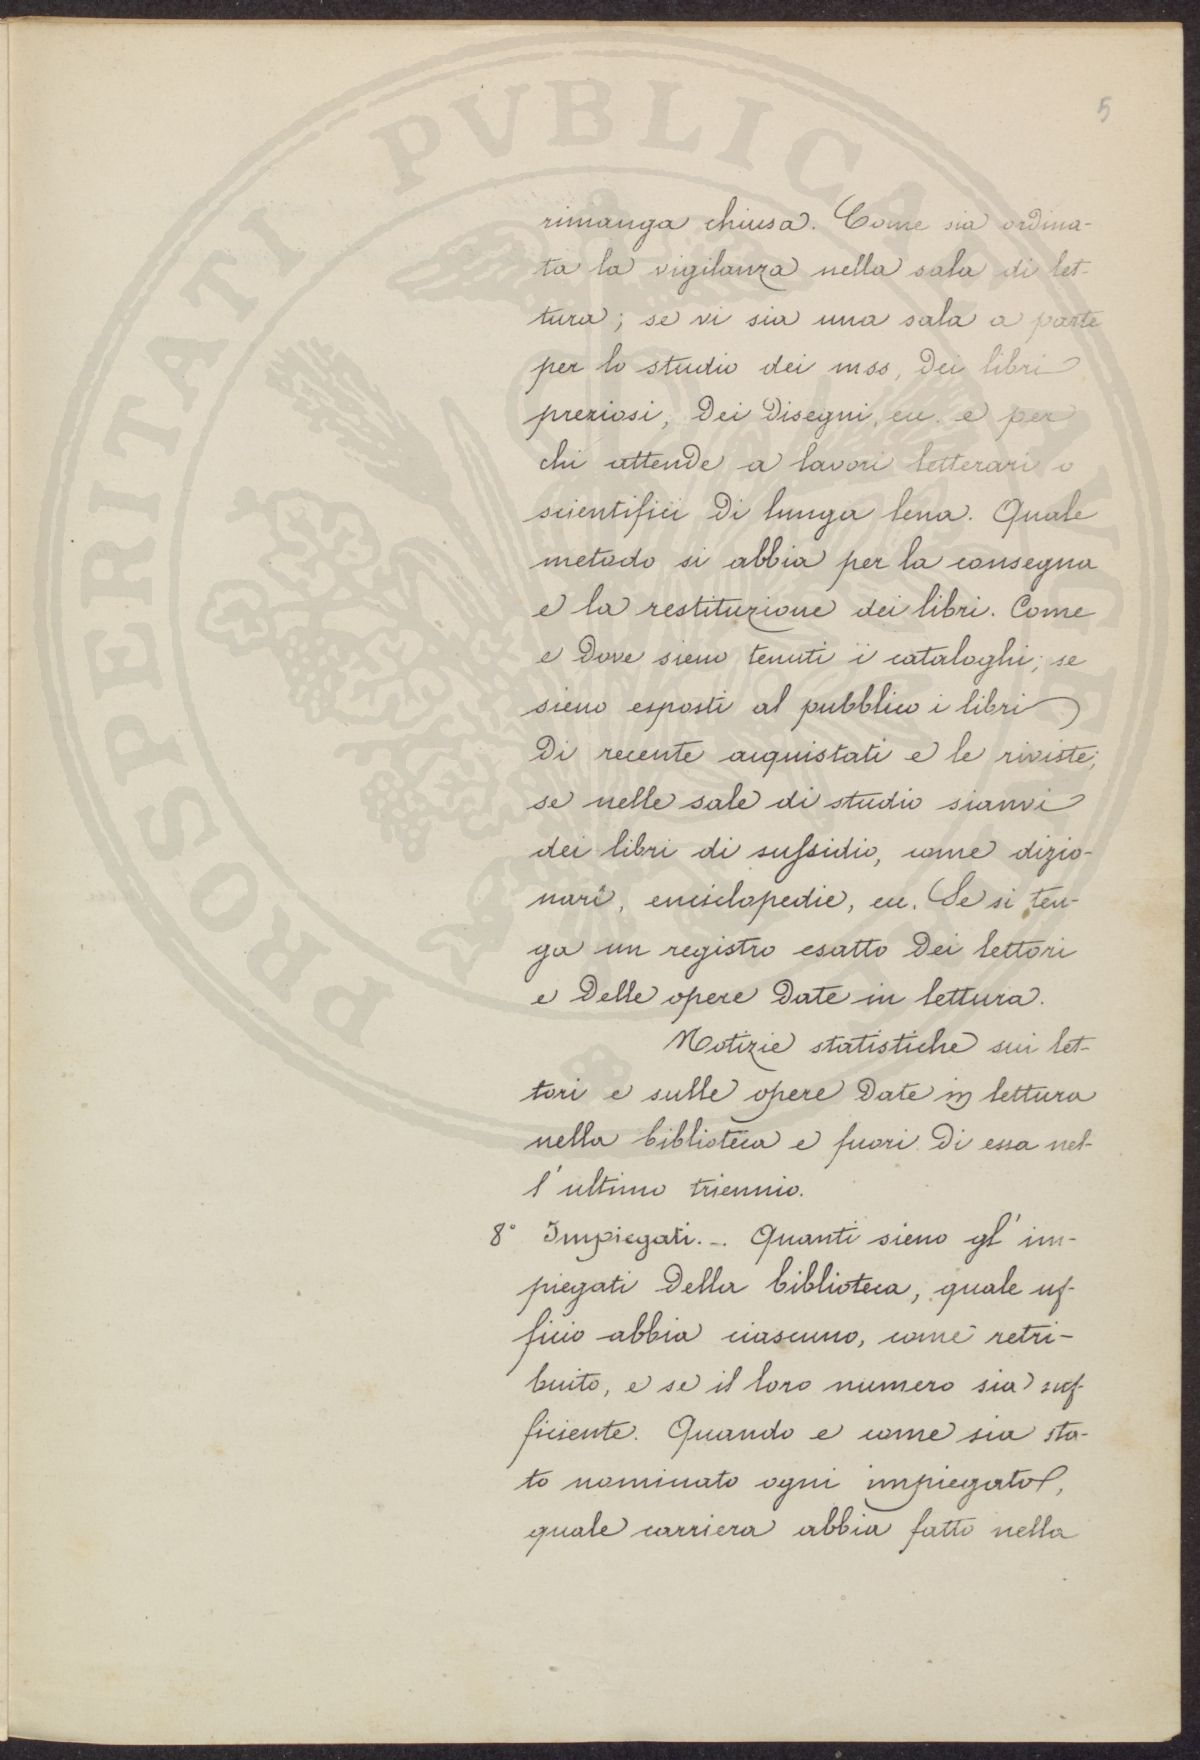 PROSPERITATI PVBLICAE
5
rimanga chiusa. Come sia ordina-
ta la vigilanza nella sala di let-
tura; se vi sia una sala a parte
per lo studio dei mss, dei libri
preziosi, dei disegni, ecc. e per
chi attende a lavori letterari o
scientifici di lunga lena. Quale
metodo si abbia per la consegna
e la restituzione dei libri. Come
e dove sieno tenuti i cataloghi; se
sieno esposti al pubblico i libri
di recente acquistati e le riviste;
se nelle sale di studio sianvi
dei libri di sussidio, come dizio-
narî, enciclopedie, ecc. Se si ten-
ga un registro esatto dei lettori
e delle opere date in lettura.
Notizie statistiche sui let-
tori e sulle opere date in lettura
nella biblioteca e fuori di essa nel-
l'ultimo triennio.
8° Impiegati. - Quanti sieno gl'im-
piegati della biblioteca, quale uf-
ficio abbia ciascuno, come retri-
buito, e se il loro numero sia suf-
ficiente. Quando e come sia sta-
to nominato ogni impiegato,
quale carriera abbia fatto nella